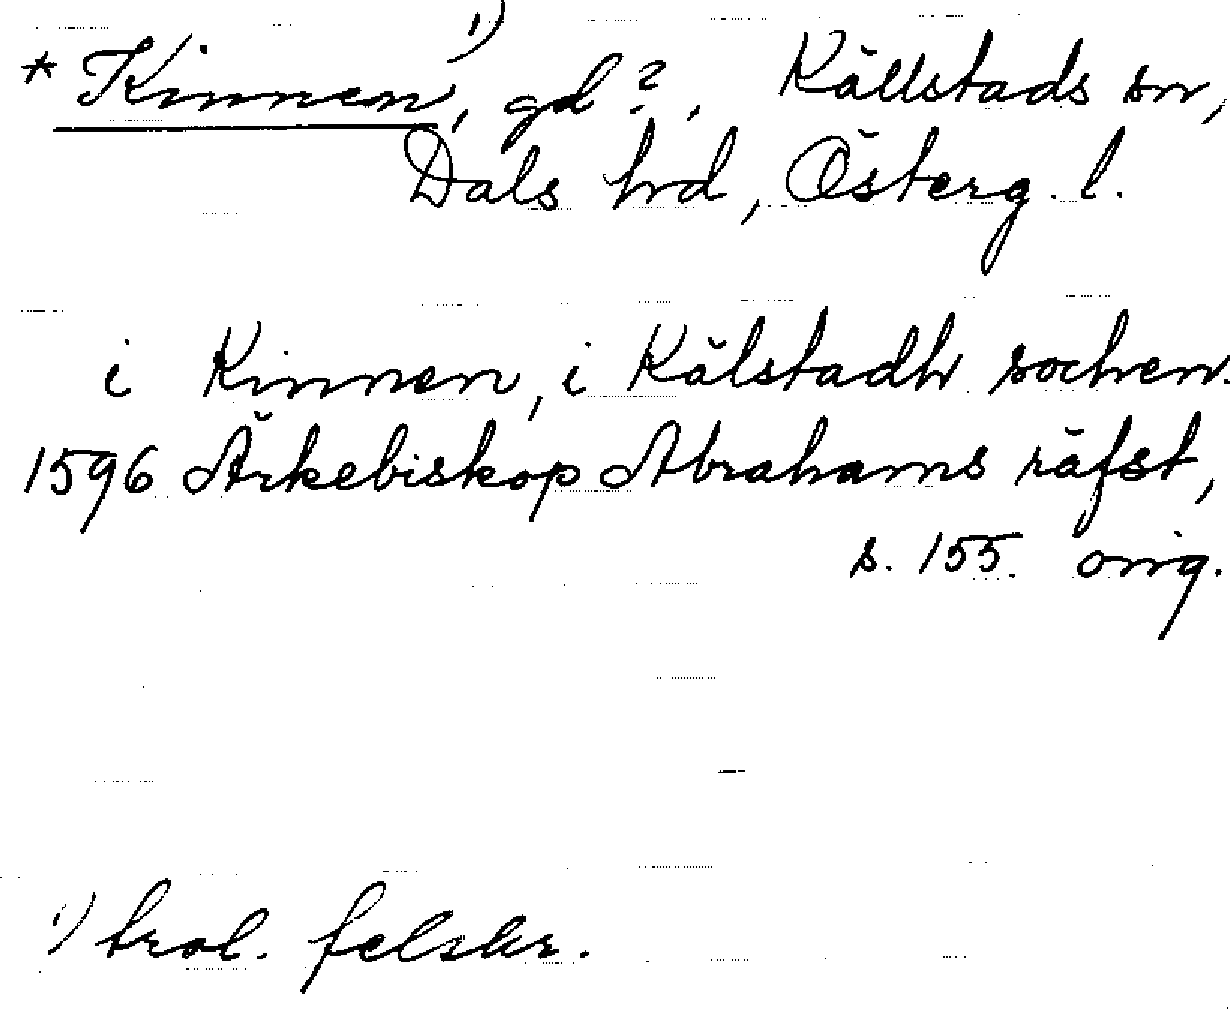 * Kinnen¹⁾, gd?, Källstads sn,
Dals hd, Österg. l.
i Kinnen, i Kälstadh sochen.
1596 Ärkebiskop Abrahams räfst,
s. 155. orig.
¹⁾ trol. felskr.